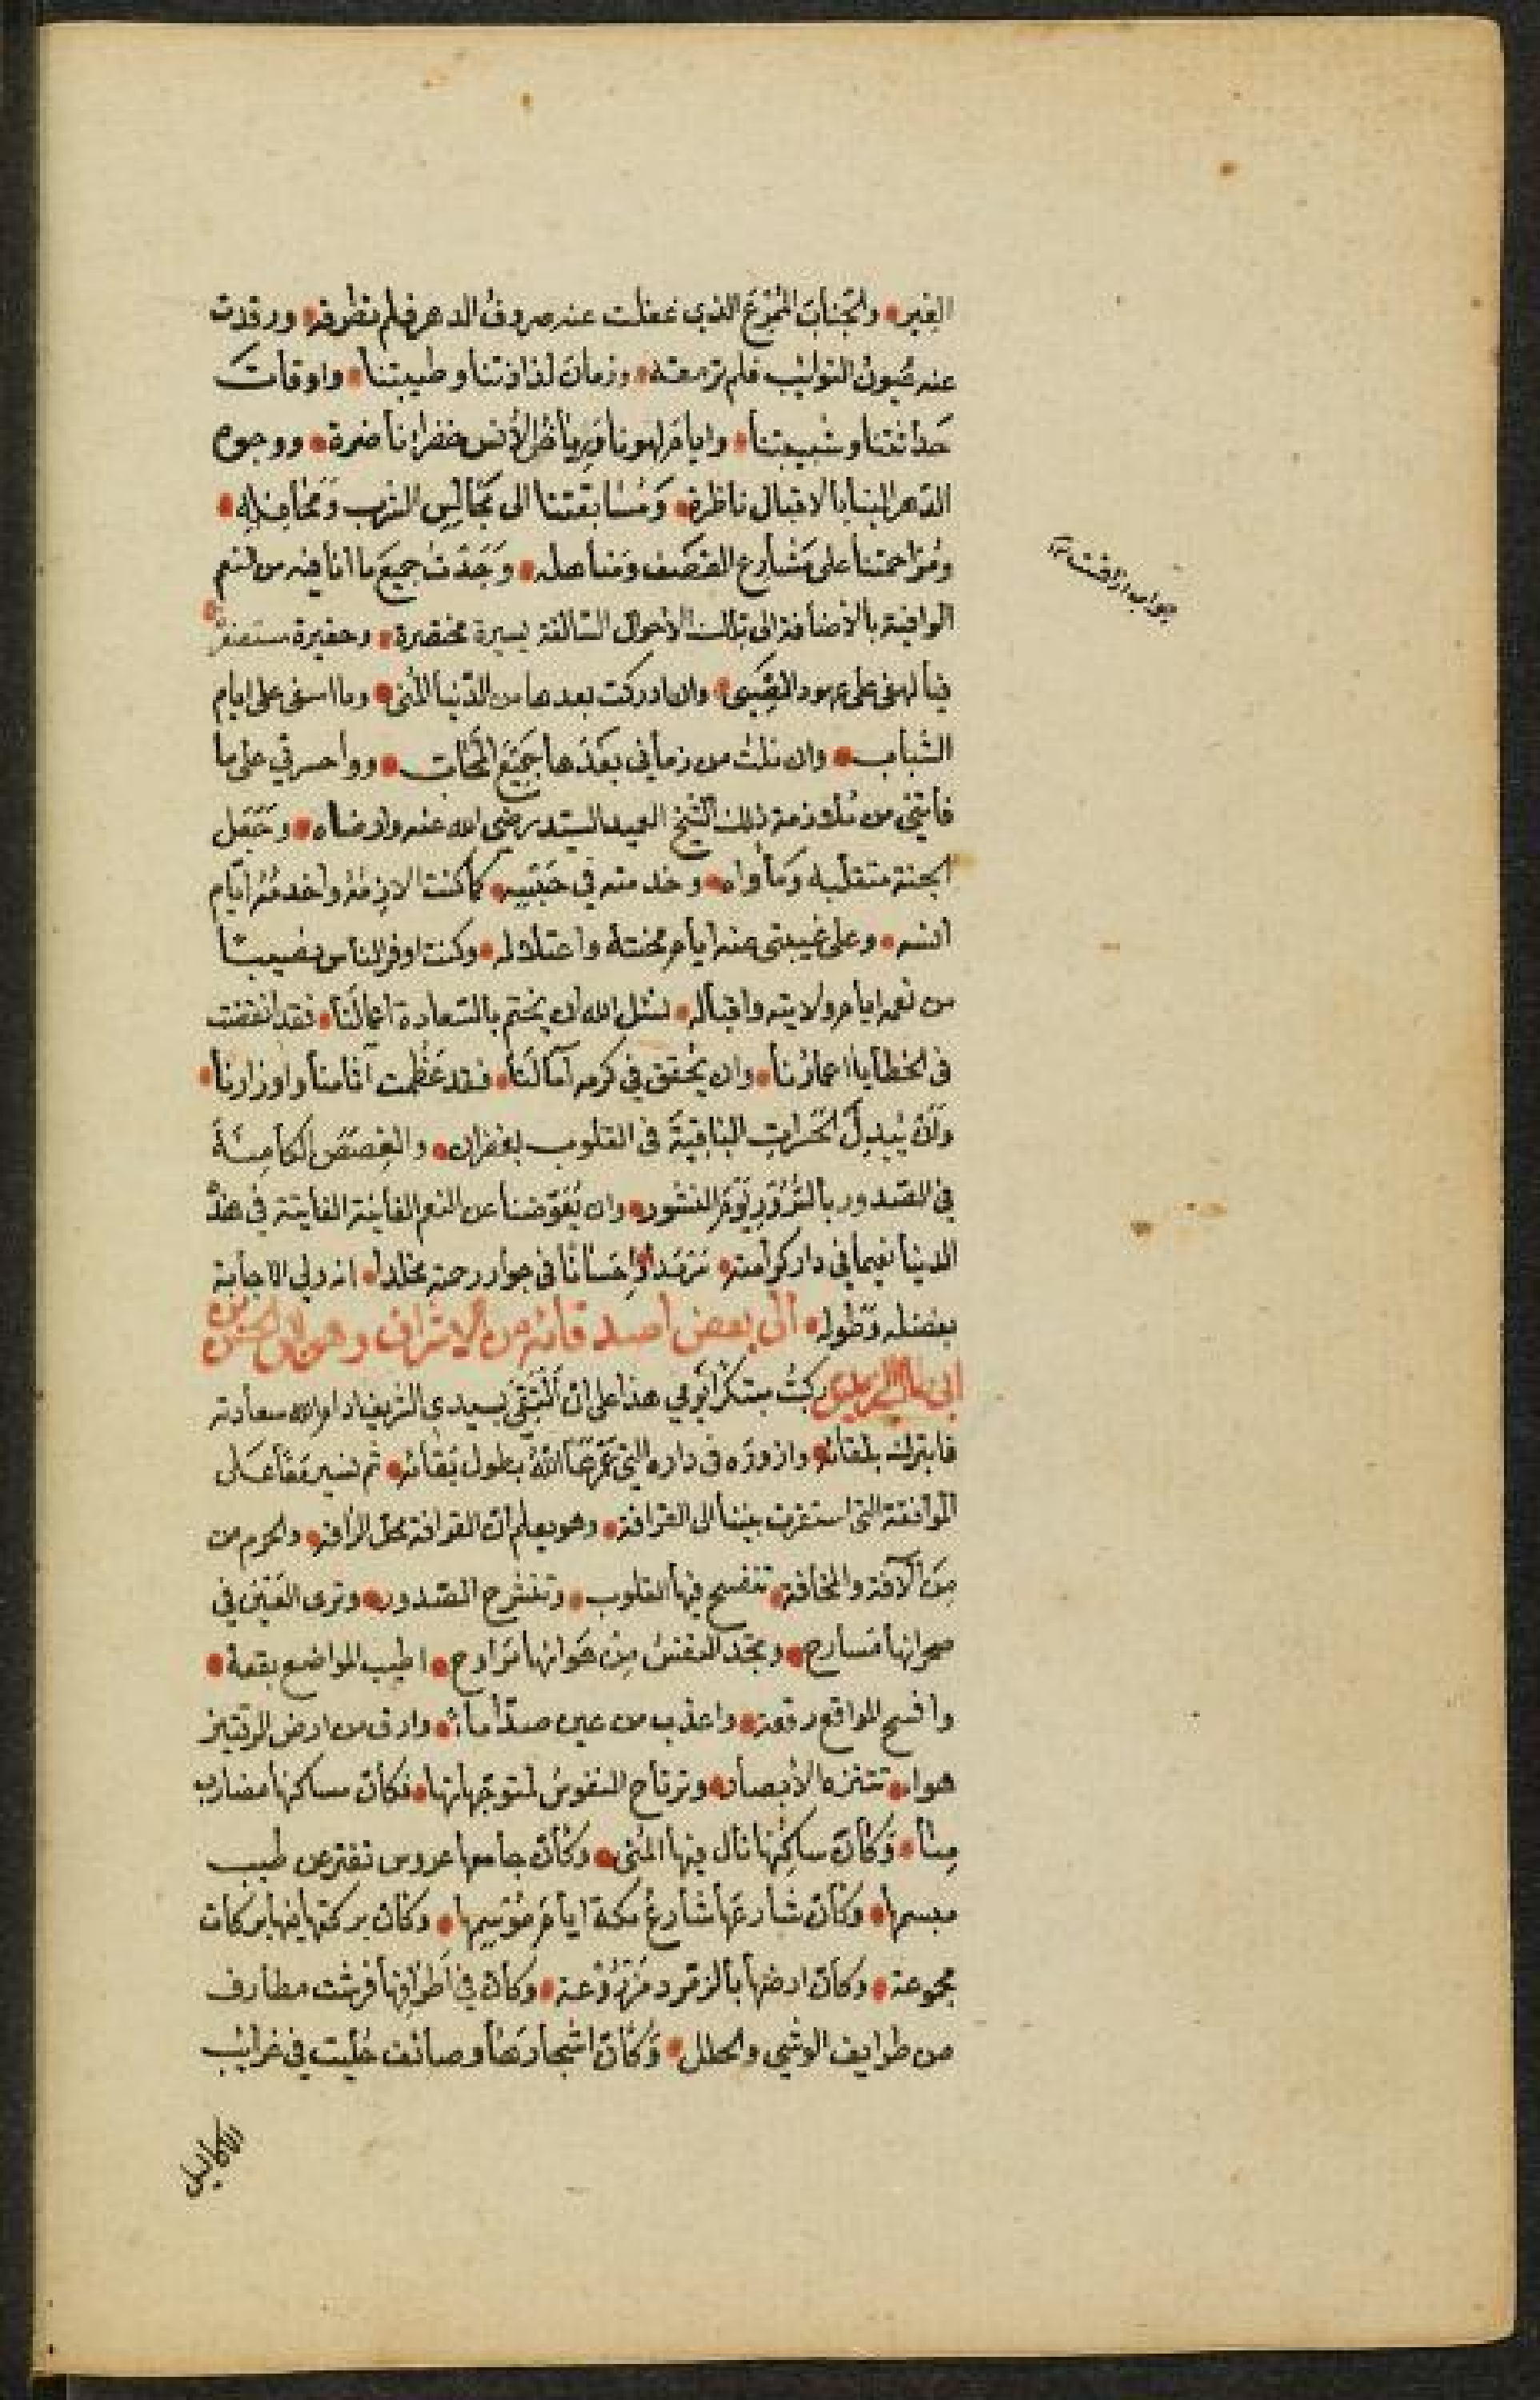 الغير والجناب المُمْرَع الذي غفلت عنه صروفُ الدهر فلم تطرقه ورقدت
عنه عُيونُ النوايب فلم ترمقه وزمان لذاذتنا وطيبتنا واوقات
حَداثتنا وشبيبتنا وايام لهونا ورياض الأنس خضرا ناضرة ووجوه
الدّهر الينا بالاقبال ناظرة وَمُسَابقتنا الى مَجالِس الشرب وَمَحافله
ومُزاحمتنا على مَشارع القصف ومناهله وَجَدتُ جميعَ ما انا فيه من النعم
الوافية بالأضافة الى تلك الأحوال السّالفة يسيرة مختصرة وحقيرة مستصغرة
فيا لهفى على عهود الصِبَى وان ادركت بعدها من الدّنيا المُنى وما اسفى على ايام
الشباب وان نلتُ من زماني بَعْدَها جَميعَ المَحابّ وواحسرتي على ما
فأتني من مُلازمة ذلك الشيخ العميد السيّد رضى الله عنه وارضاه وجَعَل
الجنة متقلبه وَمأواه وخدمته في حَبْسِه كما كنت الازمُه واخدمُه ايّام
انسه وعلى غيبتى عنه ايام محنته واعتلاله وكنت اوفر الناس نصيبًا
من نعمه ايام ولايته واقباله نسئل الله ان يختم بالسّعادة اعمالَنا فقد انقضت
فى الخطايا اعمارُنا وان يُحقق في كرمه آمالَنا فقد عَظُمت آثامنا واوزارنا
وَأن يُبدل الحَسَراتِ الباقيةَ فى القلوب بغفران والغصَص الكامِنَة
في الصّدور بالسُّرُورِ يَوْمَ النشور وان يُعَوّضنا عن النعم الفانية الفايتة في هذه
الدنيا نعيما في دار كرامته سَرْمَداً واِحسَانًا فى جوار رحمته مخلدا انه ولي الاجابة
بفضله وَطوله الى بعض اصدقائه من الاشراف وهو ابى الحسن بن
ابى طالب الزينبى ركبتُ مبتكرًا يَومي هذا على ان اَلْتَقِيَ بسيدي الشريف ادام الله سعادته
فاتبرك بلقائه وازورَه فى داره التي عَمَّرَهَا اللهُ بطول بَقائه ثم نسير مَعًا عَلى
الموافقة التى استقرت بيننا الى القرافة وهو يعلم ان القرافة محل الرأفة والحرم من
مِنَ الآفة والمخافة تنفسح فيها القلوب وتنشرح الصّدور وترى العَيْن في
صحرائها مَسارح وتجد النفسُ مِنْ هَوائها مَراوح اطيب المواضع بقعة
وأفسح المواقع رقعة واعذب من عين صدّا ماءً وارق من ارض الرقتين
هواء تتنزه الأبصار وترتاح النفوسُ لمتوجّهاتها فكأن مساكنها مضارب
مِنًا وَكأن ساكِنَها نال فيها المُنى وكأن جامعها عروس تفتر عن طيب
مبسمها وكأن شارعَها شارعُ مكة ايام مَوْسِمها وكأن بركتها فيها بركات
مجموعة وكأن ارضها بالزمرد مَزْرُوْعة وكأن في أطرافها فرشت مطارف
من طرايف الوشي والحلل وَكأن اشجارَها وصائف جُليت في غرائب
الاكاليل